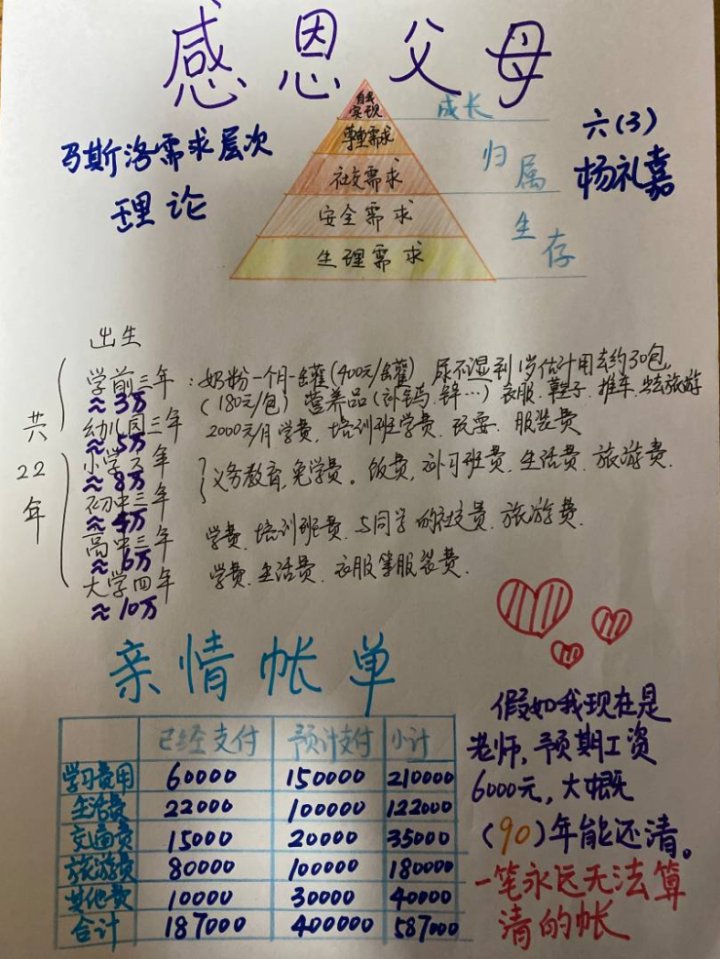 感恩父母
马斯洛需求层次
理论
自我
实现
尊重需求
社交需求
安全需求
生理需求
成长
归属
生存
六(3)
杨礼嘉
共22年
出生
学前三年:奶粉一个月一罐(400元/罐) 尿不湿到1岁估计用去约30包,
≈3万 (180元/包) 营养品(补钙、锌…) 衣服、鞋子、推车、出去旅游
幼儿园三年 2000元/月学费、培训班学费、玩耍、服装费
≈5万
小学六年 义务教育,免学费。饭费,补习班费,生活费、旅游费.
≈8万
初中三年
≈4万
高中三年 学费、培训班费、与同学的社交费、旅游费.
≈6万
大学四年 学费、生活费、衣服等服装费.
≈10万
亲情帐单
已经支付 预计支付 小计
学习费用 60000 150000 210000
生活费 22000 100000 122000
交通费 15000 20000 35000
旅游费 80000 100000 180000
其他费 10000 30000 40000
合计 187000 400000 587000
假如我现在是
老师,预期工资
6000元,大概
(90)年能还清。
一笔永远无法算
清的帐